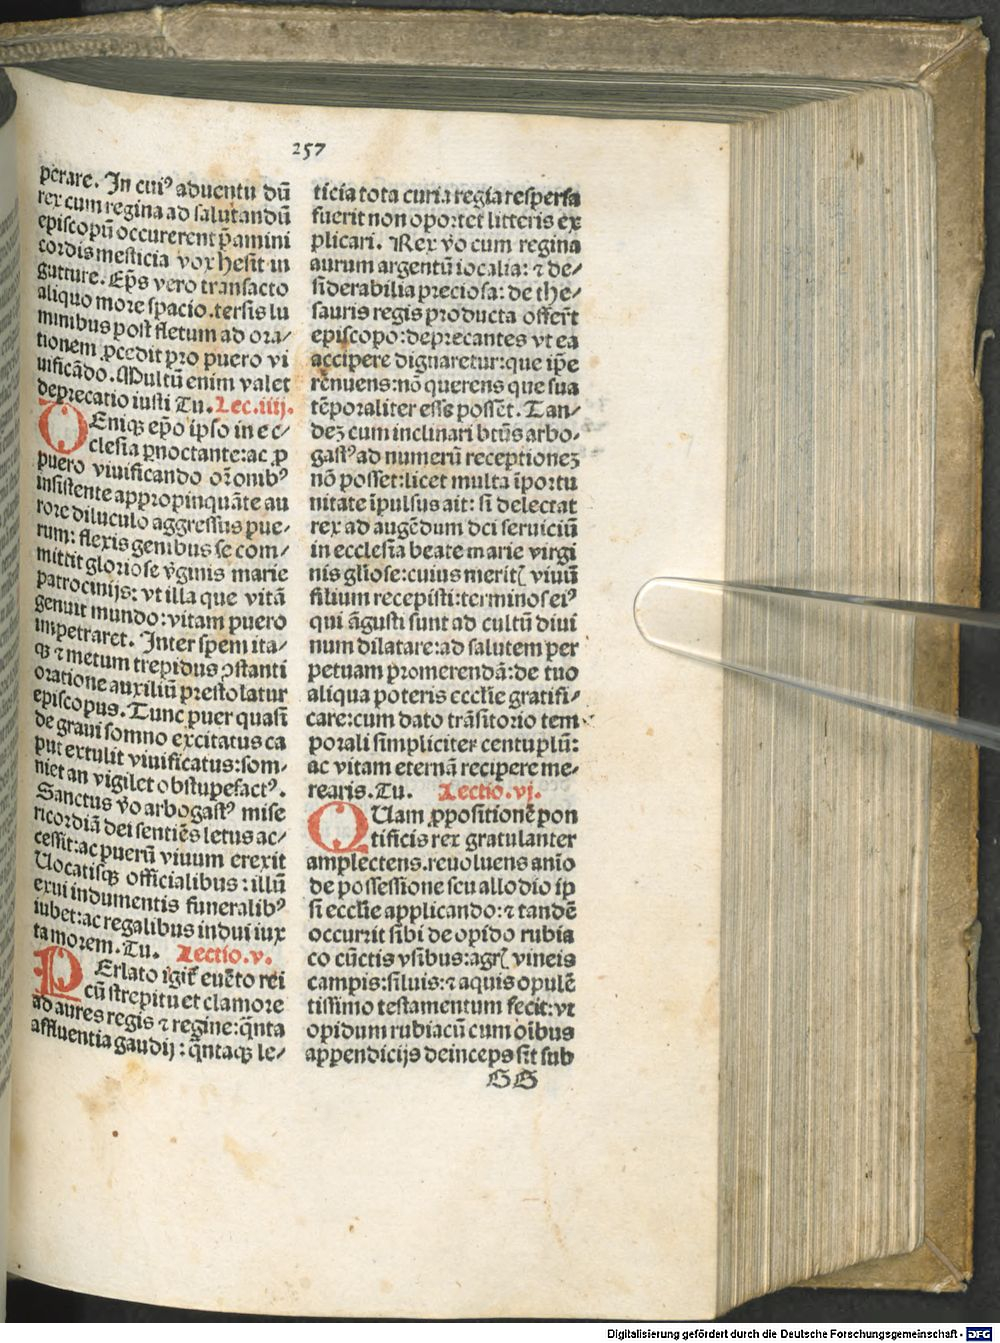 257
perare. In cui⁹ aduentu dū
rex cum regina ad salutandū
episcopū occurerent p̄amini
cordis mesticia vox hesit in
gutture. Ep̄s vero transacto
aliquo more spacio.tersis lu
minibus post fletum ad ora/
tionem ꝓcedit pro puero vi
uificādo. Multū enim valet
deprecatio iusti Tu. Lec.iiij.
DEniqꝫ ep̄o ipso in ec/
clesia ꝑnoctante:ac ꝓ
puero viuificando or̄onib⁹
insistente appropinquāte au
rore diluculo aggressus pue/
rum: flexis genibus se com/
mittit gloriose v̄ginis marie
patrocinijs: vt illa que vitā
genuit mundo:vitam puero
impetraret. Inter spem ita/
qꝫ ⁊ metum trepidus ꝯstanti
oratione auxiliū prestolatur
episcopus. Tunc puer quasi
de graui somno excitatus ca
put extulit viuificatus:som/
niet an vigilet obstupefact⁹.
Sanctus v̄o arbogast⁹ mise
ricordiā dei sentiēs letus ac/
cessit:ac puerū viuum erexit
Uocatisqꝫ officialibus: illū
exui indumentis funeralib⁹
iubet:ac regalibus indui iux
ta morem. Tu. Lectio.v.
PErlato igit̄ euēto rei
cū strepitu et clamore
ad aures regis ⁊ regine:q̄nta
affluentia gaudij: q̄ntaqꝫ le/
ticia tota curia regia respersa
fuerit non oportet litteris ex
plicari. Rex v̄o cum regina
aurum argentū iocalia: ⁊ de/
siderabilia preciosa: de the/
sauris regis producta offert̄
episcopo:deprecantes vt ea
accipere dignaretur:que ip̄e
rēnuens:nō querens que sua
tēporaliter esse possēt. Tan/
deꝫ cum inclinari bt̄us arbo/
gast⁹ ad numerū receptioneꝫ
nō posset:licet multa īportu
nitate īpulsus ait: si delectat
rex ad augēdum dei seruiciū
in ecclesia beate marie virgi
nis gl̄iose:cuius meritꝭ viuū
filium recepisti:terminos ei⁹
qui āgusti sunt ad cultū diui
num dilatare:ad salutem per
petuam promerendā:de tuo
aliqua poteris eccl̄ie gratifi/
care:cum dato trāsitorio tem
porali simpliciter centuplū:
ac vitam eternā recipere me/
rearis. Tu. Lectio.vj.
QUam ꝓpositionē pon
tificis rex gratulanter
amplectens.reuoluens anīo
de possessione seu allodio ip
si eccl̄ie applicando:⁊ tandē
occurrit sibi de opido rubia
co cūctis vsibus:agrꝭ vineis
campis:siluis:⁊ aquis opulē
tissimo testamentum fecit:vt
opidum rubiacū cum oībus
appendicijs deinceps sit̄ sub
GG
Digitalisierung gefördert durch die Deutsche Forschungsgemeinschaft - DFG